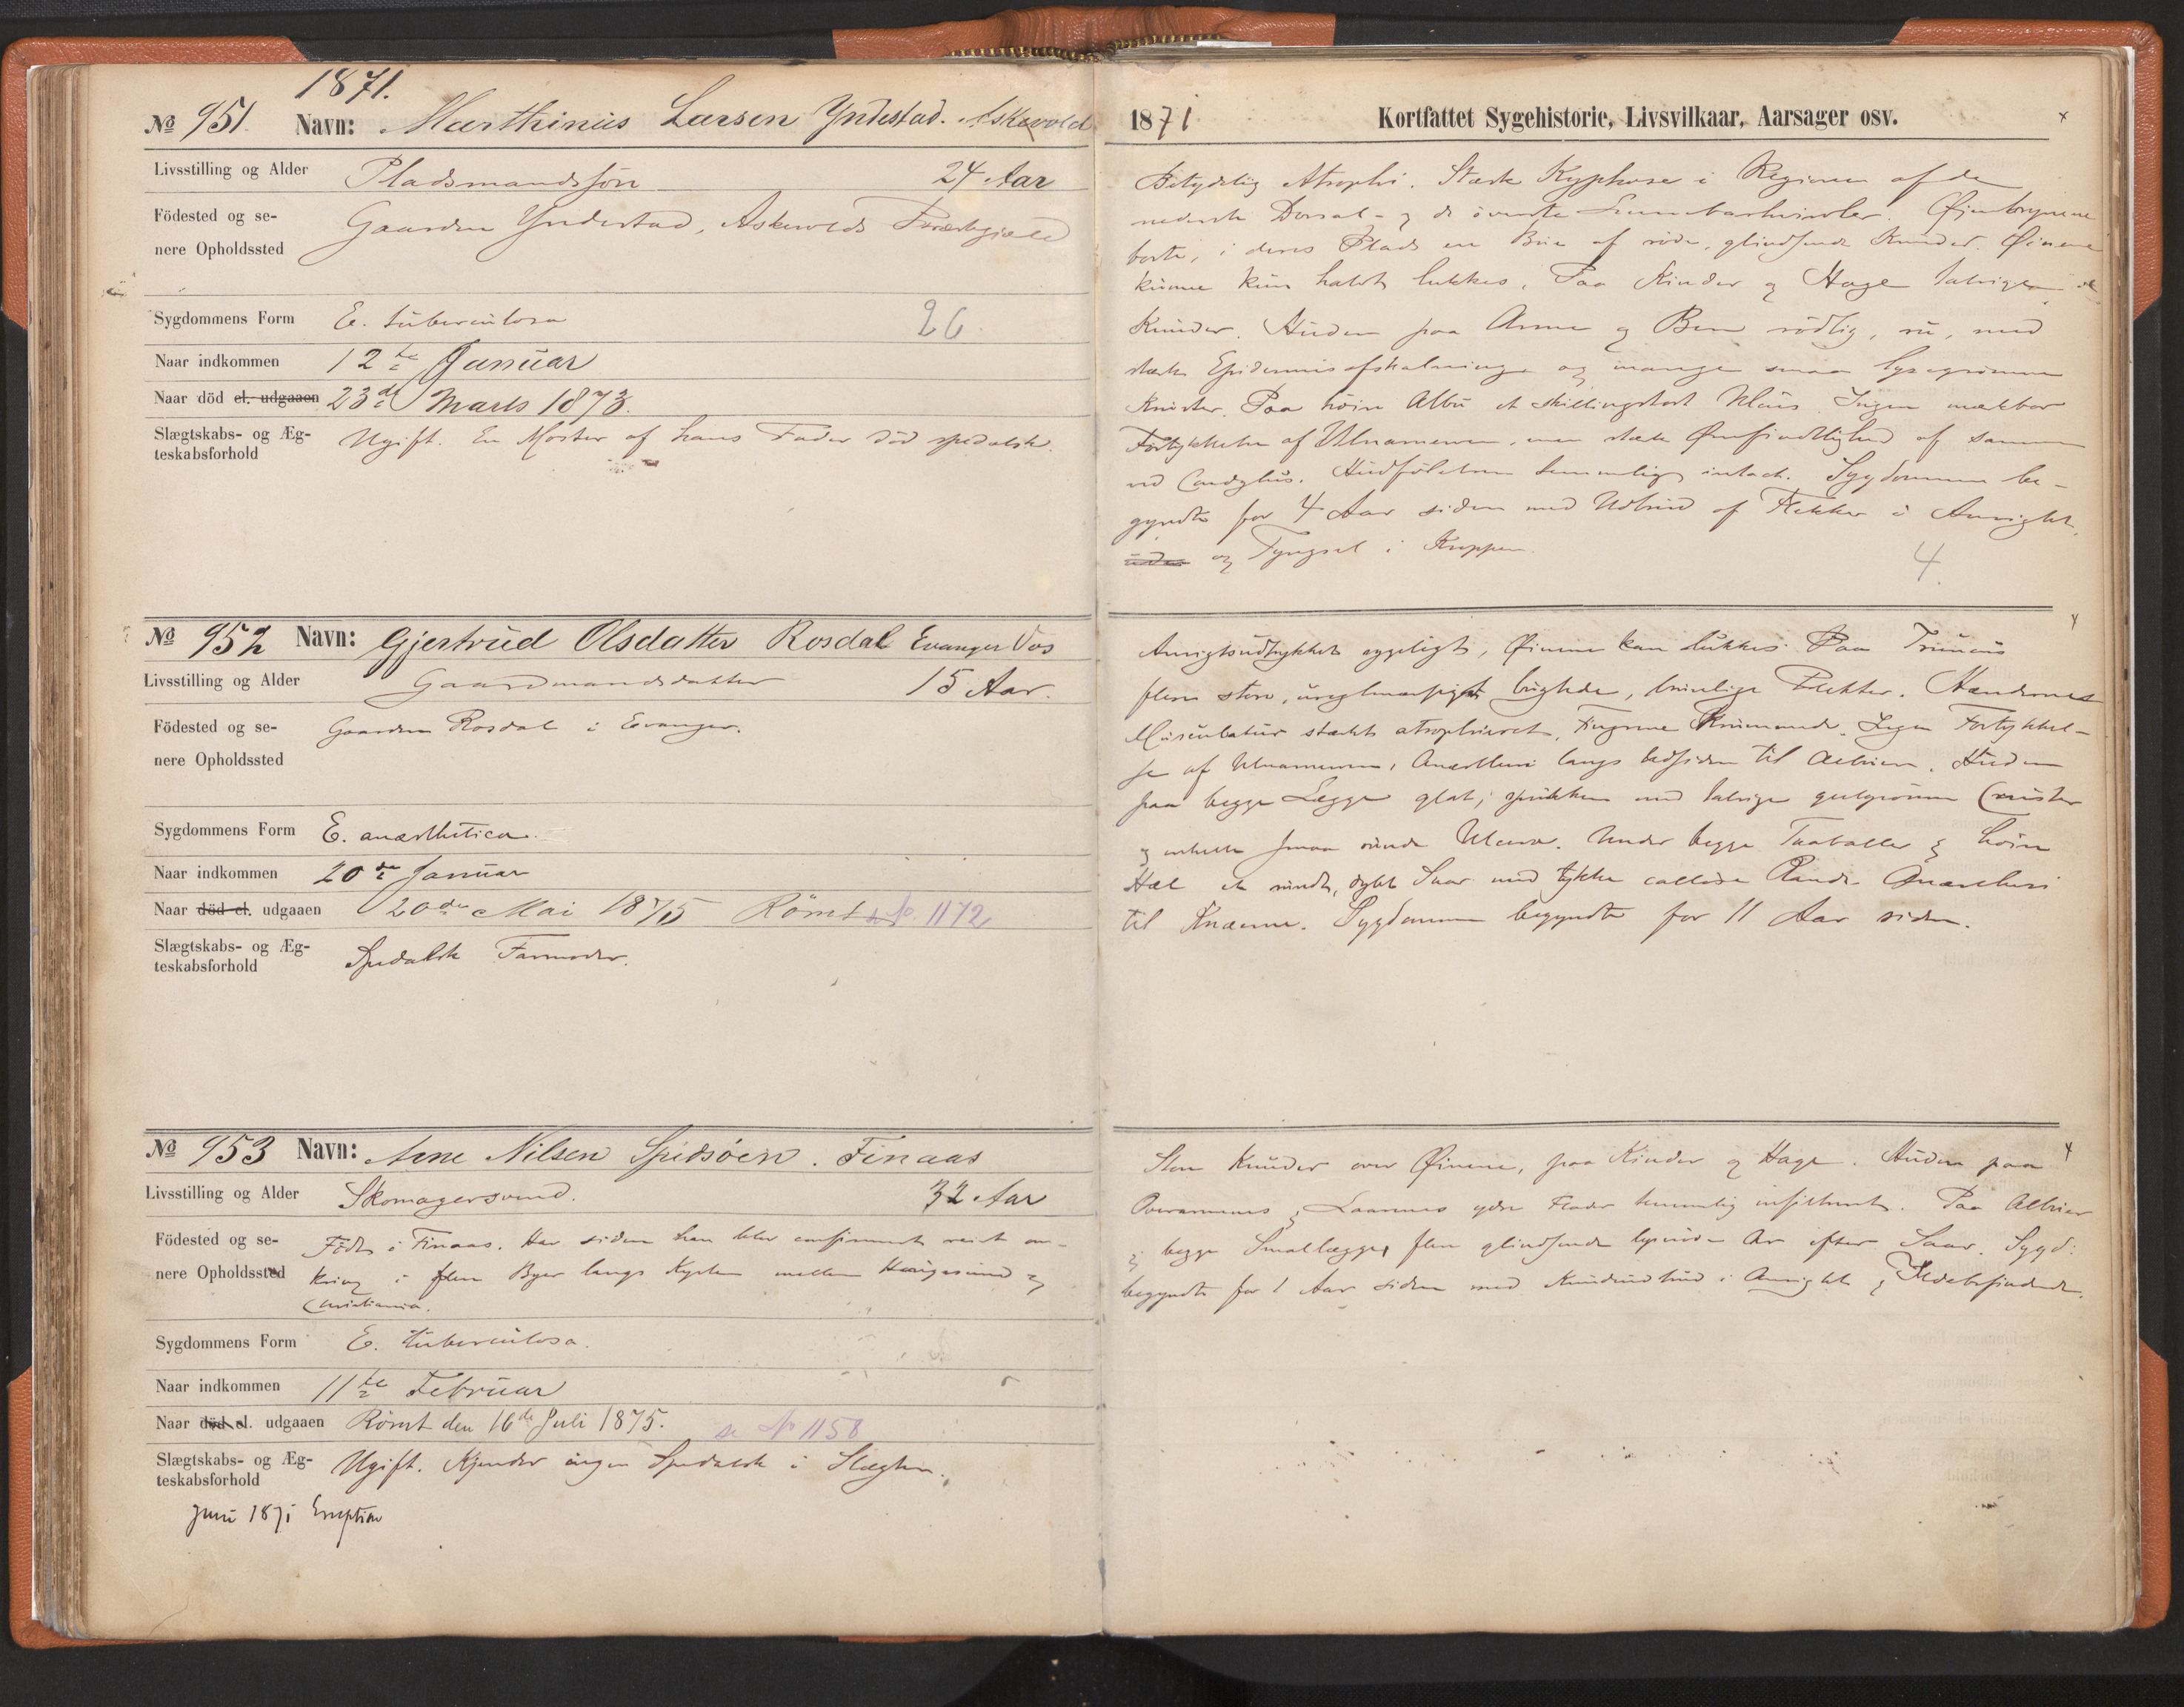 1871.
№ 951. Navn: Marthinus Larsen Yndestad. Askevold
Livsstilling og Alder Pladsmandssøn 24 Aar
Födested og se-
nere Opholdssted Gaarden Yndestad, Askevolds Præstegjæld
Sygdommens Form E. tuberculosa 26
Naar indkommen 12te Januar
Naar död el. udgaaen 23de Marts 1873.
Slægtskabs- og Æg-
teskabsforhold Ugift. En Moster af hans Fader död spedalsk.
№ 952 Navn: Gjertrud Olsdatter Rosdal Evanger Vos
Livsstilling og Alder Gaardmandsdatter 15 Aar.
Födested og se-
nere Opholdssted Gaarden Rosdal i Evanger.
Sygdommens Form E. anæsthetica.
Naar indkommen 20de Januar
Naar död el. udgaaen 20de Mai 1875 Römt se No. 1172
Slægtskabs- og Æg-
teskabsforhold Spedalsk Farmoder.
№ 953 Navn: Arne Nilsen Spidsöen. Finaas
Livsstilling og Alder Skomagersvend. 32 Aar
Födested og se-
nere Opholdssted Födt i Finaas. Har siden han blev confirmeret reist om-
kring i flere Byer langs Kysten mellem Haugesund og
Christiania.
Sygdommens Form E. tuberculosa.
Naar indkommen 11te Februar
Naar död el. udgaaen Römt den 16de Juli 1875. se No 1158
Slægtskabs- og Æg-
teskabsforhold Ugift. Kjender ingen Spedalsk i Slægten.
Juni 1871 Eruption
1871 Kortfattet Sygehistorie, Livsvilkaar, Aarsager osv. x
Betydelig Atrophi. Stærk Kyphose i Regionen af de
nederste Dorsal- og de överste Lumbarhvirvler. Öienbrynene
borte, i deres Plads en Bue af röde, glindsende Knuder. Öinene
kunne kun halvt lukkes. Paa Kinder og Hage talrige
Knuder. Huden paa Arme og Ben rödlig, ru, med
stærk Epidermisafskalning og mange smaa lysegrönne
Knuder. Paa höire Albu et skillingstort Ulcus. Ingen mærkbar
Fortykkelse af Ulnarnerven, men stærk Ömfindtlighed af samme
ved Condylus. Hudfölelsen temmelig intact. Sygdommen be-
gyndte for 4 Aar siden med Udbrud af Flekker i Ansigtet
og Tyngsel i Kroppen.
4.
Ansigtsudtrykket sygeligt, Öinene kan lukkes. Paa Truncus
flere store, uregelmæssigt bugtede, brunlige Plekter. Hændernes
Musculatur stærkt atrophieret, Fingrene krummede. Ingen Fortykkel-
se af Ulnarnerven, Anæsthesi langs Udsiden til Albuen. Huden
paa begge Lægge glat, med talrige gulgrönne Cruster
og enkelte smaa runde Ulcera. Under begge Taaballer og höire
Hæl et rundt, dybt Saar med tykke callöse Rande. Anæsthesi
til Knæerne. Sygdommen begyndte for 11 Aar siden.
Store Knuder over Öinene, paa Kinder og Hage. Huden paa
Overarmenes og Laarenes ydre Flader temmelig infiltreret. Paa Albuer
og begge Smallægge flere glindsende lyseröde Ar efter Saar. Sygd.
begyndte for 1 Aar siden med Knudeudbrud i Ansigtet og Ildebefindende.